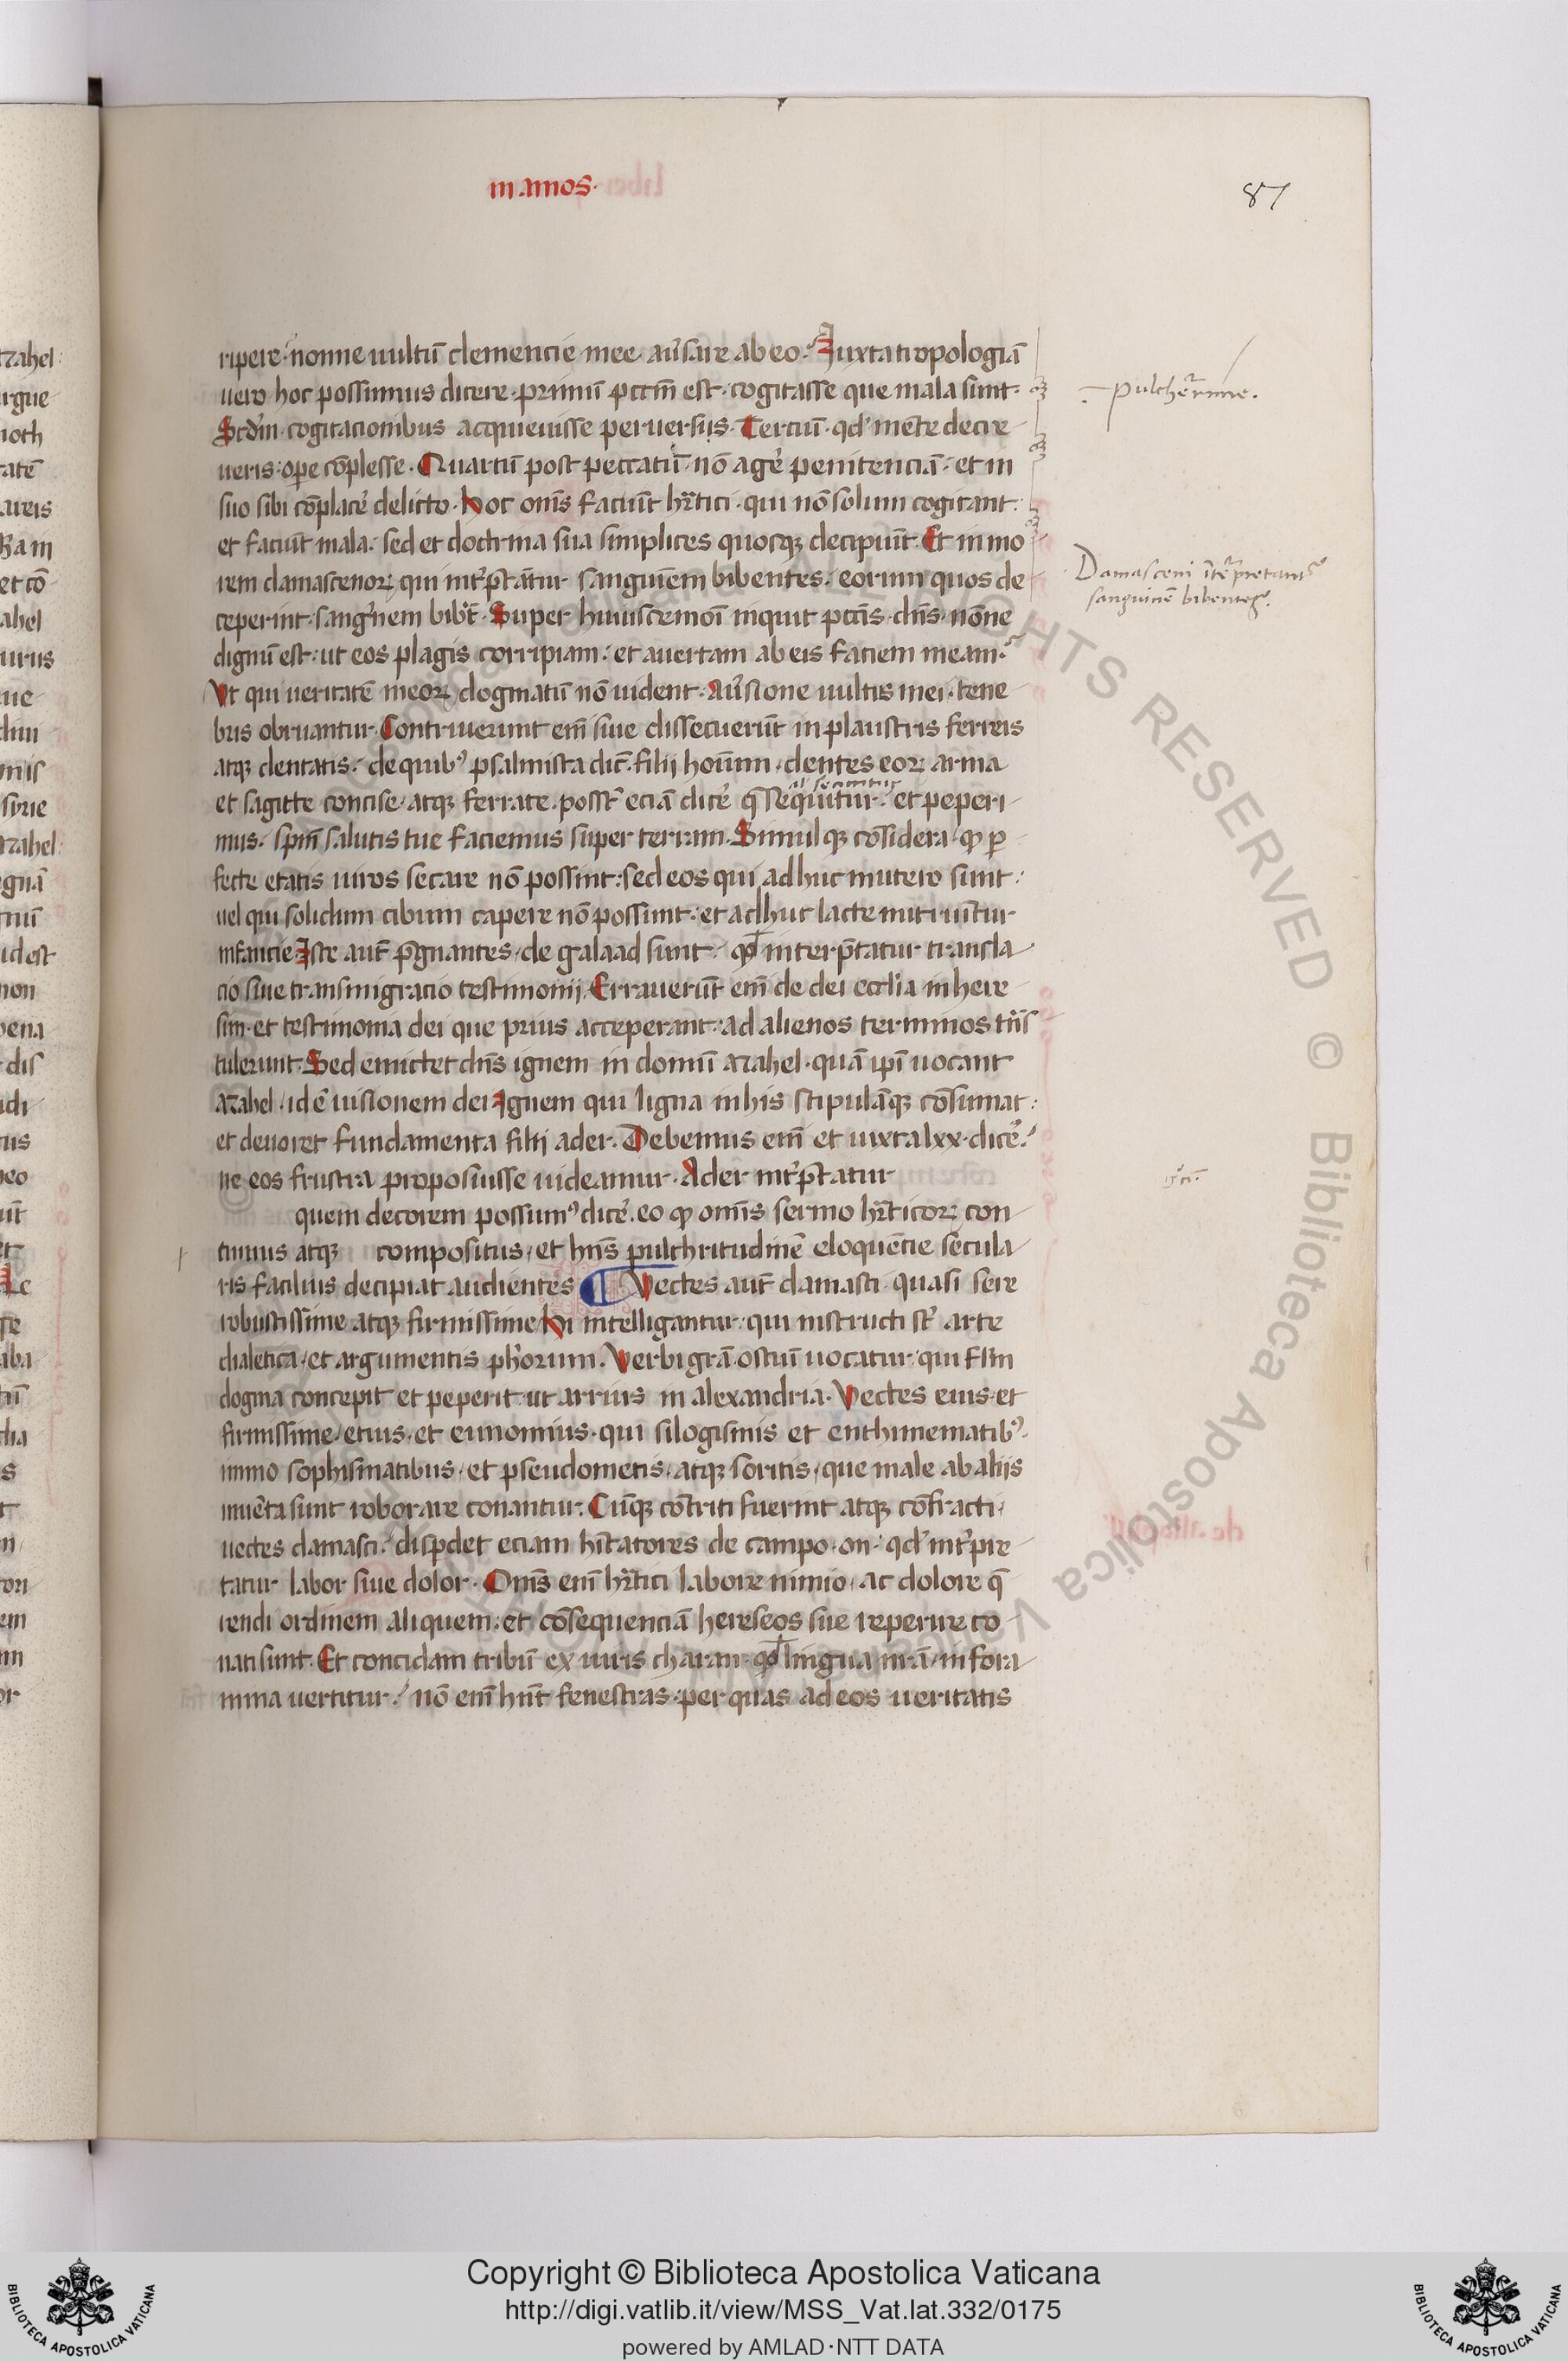 in amos·
87
ripere· nonne uultū clemencie mee au̓sare ab eo. Iuxta tropologiā
uero hoc possumus dicere· primū pctm̄ est· cogitasse que mala sunt·
Scd̓m· cogitacionibus acquieuisse peruersis· Terciū· qd̓ mēte decre
ueris: ope cōplesse· Quartū post peccatū nō age̓ penitenciā· et in
suo sibi cōplace̓ delicto· Hoc om̄s faciūt hr̄tici· qui nō solum cogitant·
et faciūt mala: sed et doctrina sua simplices quocqꝫ decipiūt· Et in mo
rem damascenoꝝ qui int̓p̄tātur sanguinem bibentes· eorum quos de
ceperint· sang̓nem bibūt· Super huiuscemoī inquit pctīs· dn̄s· nōne
dignū est: ut eos plagis corripiam: et auertam ab eis faciem meam·
Vt qui ueritatē meoꝝ dogmatū nō uident· Au̓sione uultus mei· tene
bris obruantur· Contriuerunt em̄ siue dissecuerūt in plaustris ferreis
atqꝫ dentatis· de quib᾽ psalmista dic̄· filij hoīum· dentes eoꝝ arma
al̓ secantur
et sagitte concise· atqꝫ ferrate· possꝰ eciā dice̓ q̄ sequūtur· et peperi
mus· spm̄ salutis tue faciemus super terram· Simulqꝫ cōsidera· ꝙ ꝑ
fecte etatis uiros secare nō possint: sed eos qui adhuc in utero sunt:
uel qui solidum cibum capere nō possunt: et adhuc lacte nutriūtur
infancie Iste aut̄ p̄gnantes· de galaad sunt· qd̓ interp̄tatur transla
cio siue transmigracio testimonij· Errauerūt em̄ de dei eccl̓ia in here
sim· et testimonia dei que prius acceperant: ad alienos terminos tn̄s
tulerunt· Sed emictet dn̄s ignem in domū azahel· quā ip̄i uocant
azahel· id ē uisionem dei Ignem qui ligna in his stipulāqꝫ cōsumat:
et deuoret fundamenta filij ader· Debemus em̄ et iuxta lxx· dice̓·
ne eos frustra proposuisse uideamur· Ader int̓p̄tatur
quem decorem possum᾽ dice̓· eo ꝙ om̄is sermo hr̄ticoꝝ con
tinuus atqꝫ compositus· et hn̄s pulchritudinē eloquēcie secula
ris facilius decipiat audientes ¶ Vectes aut̄ damasci· quasi sere
robustissime atqꝫ firmissime Hi intelligantur· qui instructi sꝰ arte
dialetica· et argumentis ph̓orum· Verbi grā· ostiū uocatur· qui fsm
dogma concepit et peperit· ut arrius in alexandria· Vectes eius· et
firmissime· etius· et eunomius· qui silogismis et enthimematib᾽·
immo sophismatibus· et pseudometis· atqꝫ soritis· que male ab alijs
inuēta sunt roborare conantur· Cūqꝫ cōtriti fuerint atqꝫ cōfracti·
uectes damasci· disp̄det eciam hītatores de campo· on· qd̓ int̓pre
tatur labor siue dolor· Om̄s em̄ hr̄tici labore nimio· ac dolore q̄
rendi ordinem aliquem: et cōsequenciā hereseos sue reperire co
nati sunt· Et concidam tribū ex uiris charan· qd̓ lingua nr̄a· in fora
mina uertitur· nō em̄ hn̄t fenestras· per quas ad eos ueritatis
pulcherrime.
Damasceni īte̓pretant᾽
sanguinē bibentes.
Copyright © Biblioteca Apostolica Vaticana
http://digi.vatlib.it/view/MSS_Vat.lat.332/0175
powered by AMLAD·NTT DATA
BIBLIOTECA APOSTOLICA VATICANA
BIBLIOTECA APOSTOLICA VATICANA